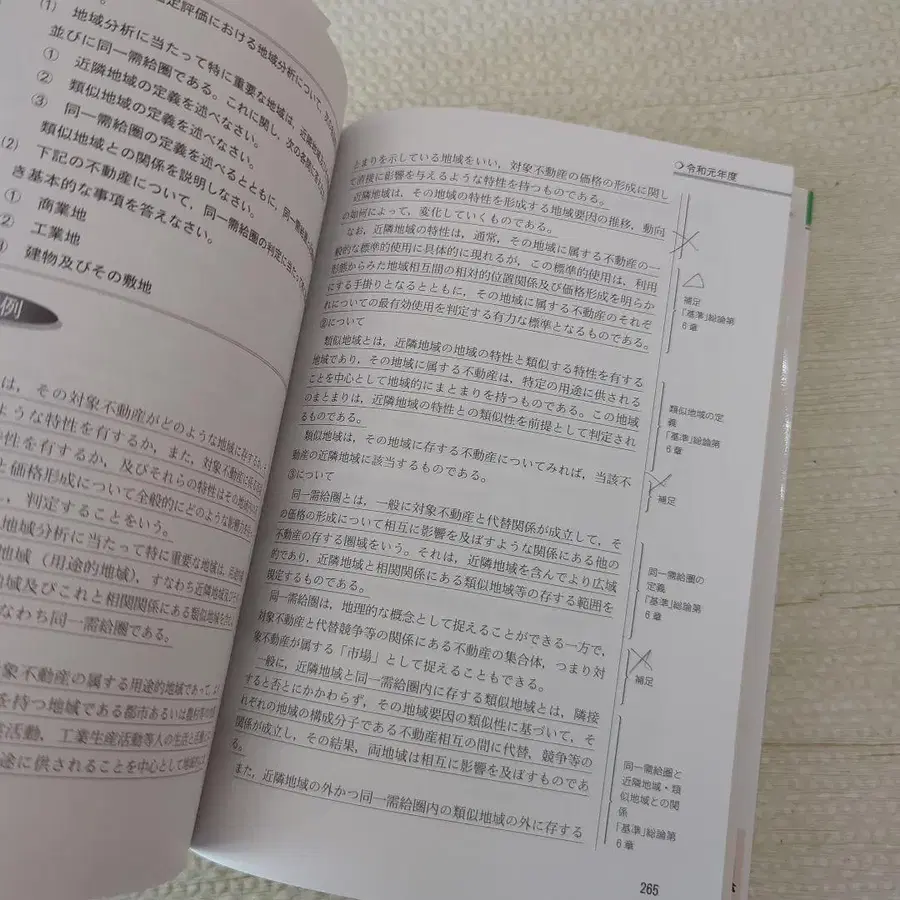 定評価における地域分析について、
(1) 地域分析に当たって特に重要な地域は、近隣地域
並びに同一需給圏である。これに関し、次の各問に
① 近隣地域の定義を述べなさい。
② 類似地域の定義を述べなさい。
③ 同一需給圏の定義を述べるとともに、同一需給圏
類似地域との関係を説明しなさい。
(2) 下記の不動産について、同一需給圏の判定に当たって
き基本的な事項を答えなさい。
① 商業地
② 工業地
建物及びその敷地
例
は、その対象不動産がどのような地域に存するか、そ
ような特性を有するか、また、対象不動産に係る市
特性を有するか、及びそれらの特性はその地域内の
と価格形成について全般的にどのような影響力を持っ
し、判定することをいう。
地域分析に当たって特に重要な地域は、
地域(用途的地域)、すなわち近隣地域及び
地域及びこれと相関関係にある類似地域を含む
なわち同一需給圏である。
対象不動産の属する用途的地域であって、
を持つ地域である都市あるいは農村等の
業活動、工業生産活動等人の生活と活動と
途に供されることを中心として地域的に
令和元年度
とまりを示している地域をいい、対象不動産の価格の形成に関し
て直接に影響を与えるような特性を持つものである。
近隣地域は、その地域の特性を形成する地域要因の推移、動向
の如何によって、変化していくものである。
なお、近隣地域の特性は、通常、その地域に属する不動産の一
般的な標準的使用に具体的に現れるが、この標準的使用は、利用
形態からみた地域相互間の相対的位置関係及び価格形成を明らか
にする手掛りとなるとともに、その地域に属する不動産のそれぞ
れについての最有効使用を判定する有力な標準となるものである。
②について
類似地域とは、近隣地域の地域の特性と類似する特性を有する
地域であり、その地域に属する不動産は、特定の用途に供される
ことを中心として地域的にまとまりを持つものである。この地域
のまとまりは、近隣地域の特性との類似性を前提として判定され
るものである。
類似地域は、その地域に存する不動産についてみれば、当該不
動産の近隣地域に該当するものである。
③について
同一需給圏とは、一般に対象不動産と代替関係が成立して、そ
の価格の形成について相互に影響を及ぼすような関係にある他の
不動産の存する圏域をいう。それは、近隣地域を含んでより広域
的であり、近隣地域と相関関係にある類似地域等の存する範囲を
規定するものである。
同一需給圏は、地理的な概念として捉えることができる一方で、
対象不動産と代替競争等の関係にある不動産の集合体、つまり対
象不動産が属する「市場」として捉えることもできる。
一般に、近隣地域と同一需給圏内に存する類似地域とは、隣接
すると否とにかかわらず、その地域要因の類似性に基づいて、そ
れぞれの地域の構成分子である不動産相互の間に代替、競争等の
関係が成立し、その結果、両地域は相互に影響を及ぼすものであ
る。
また、近隣地域の外かつ同一需給圏内の類似地域の外に存する
補足
「基準」総論第
6章
類似地域の定
義
「基準」総論第
6章
補足
同一需給圏の
定義
「基準」総論第
6章
補足
同一需給圏と
近隣地域・類
似地域との関
係
「基準」総論第
6章
265